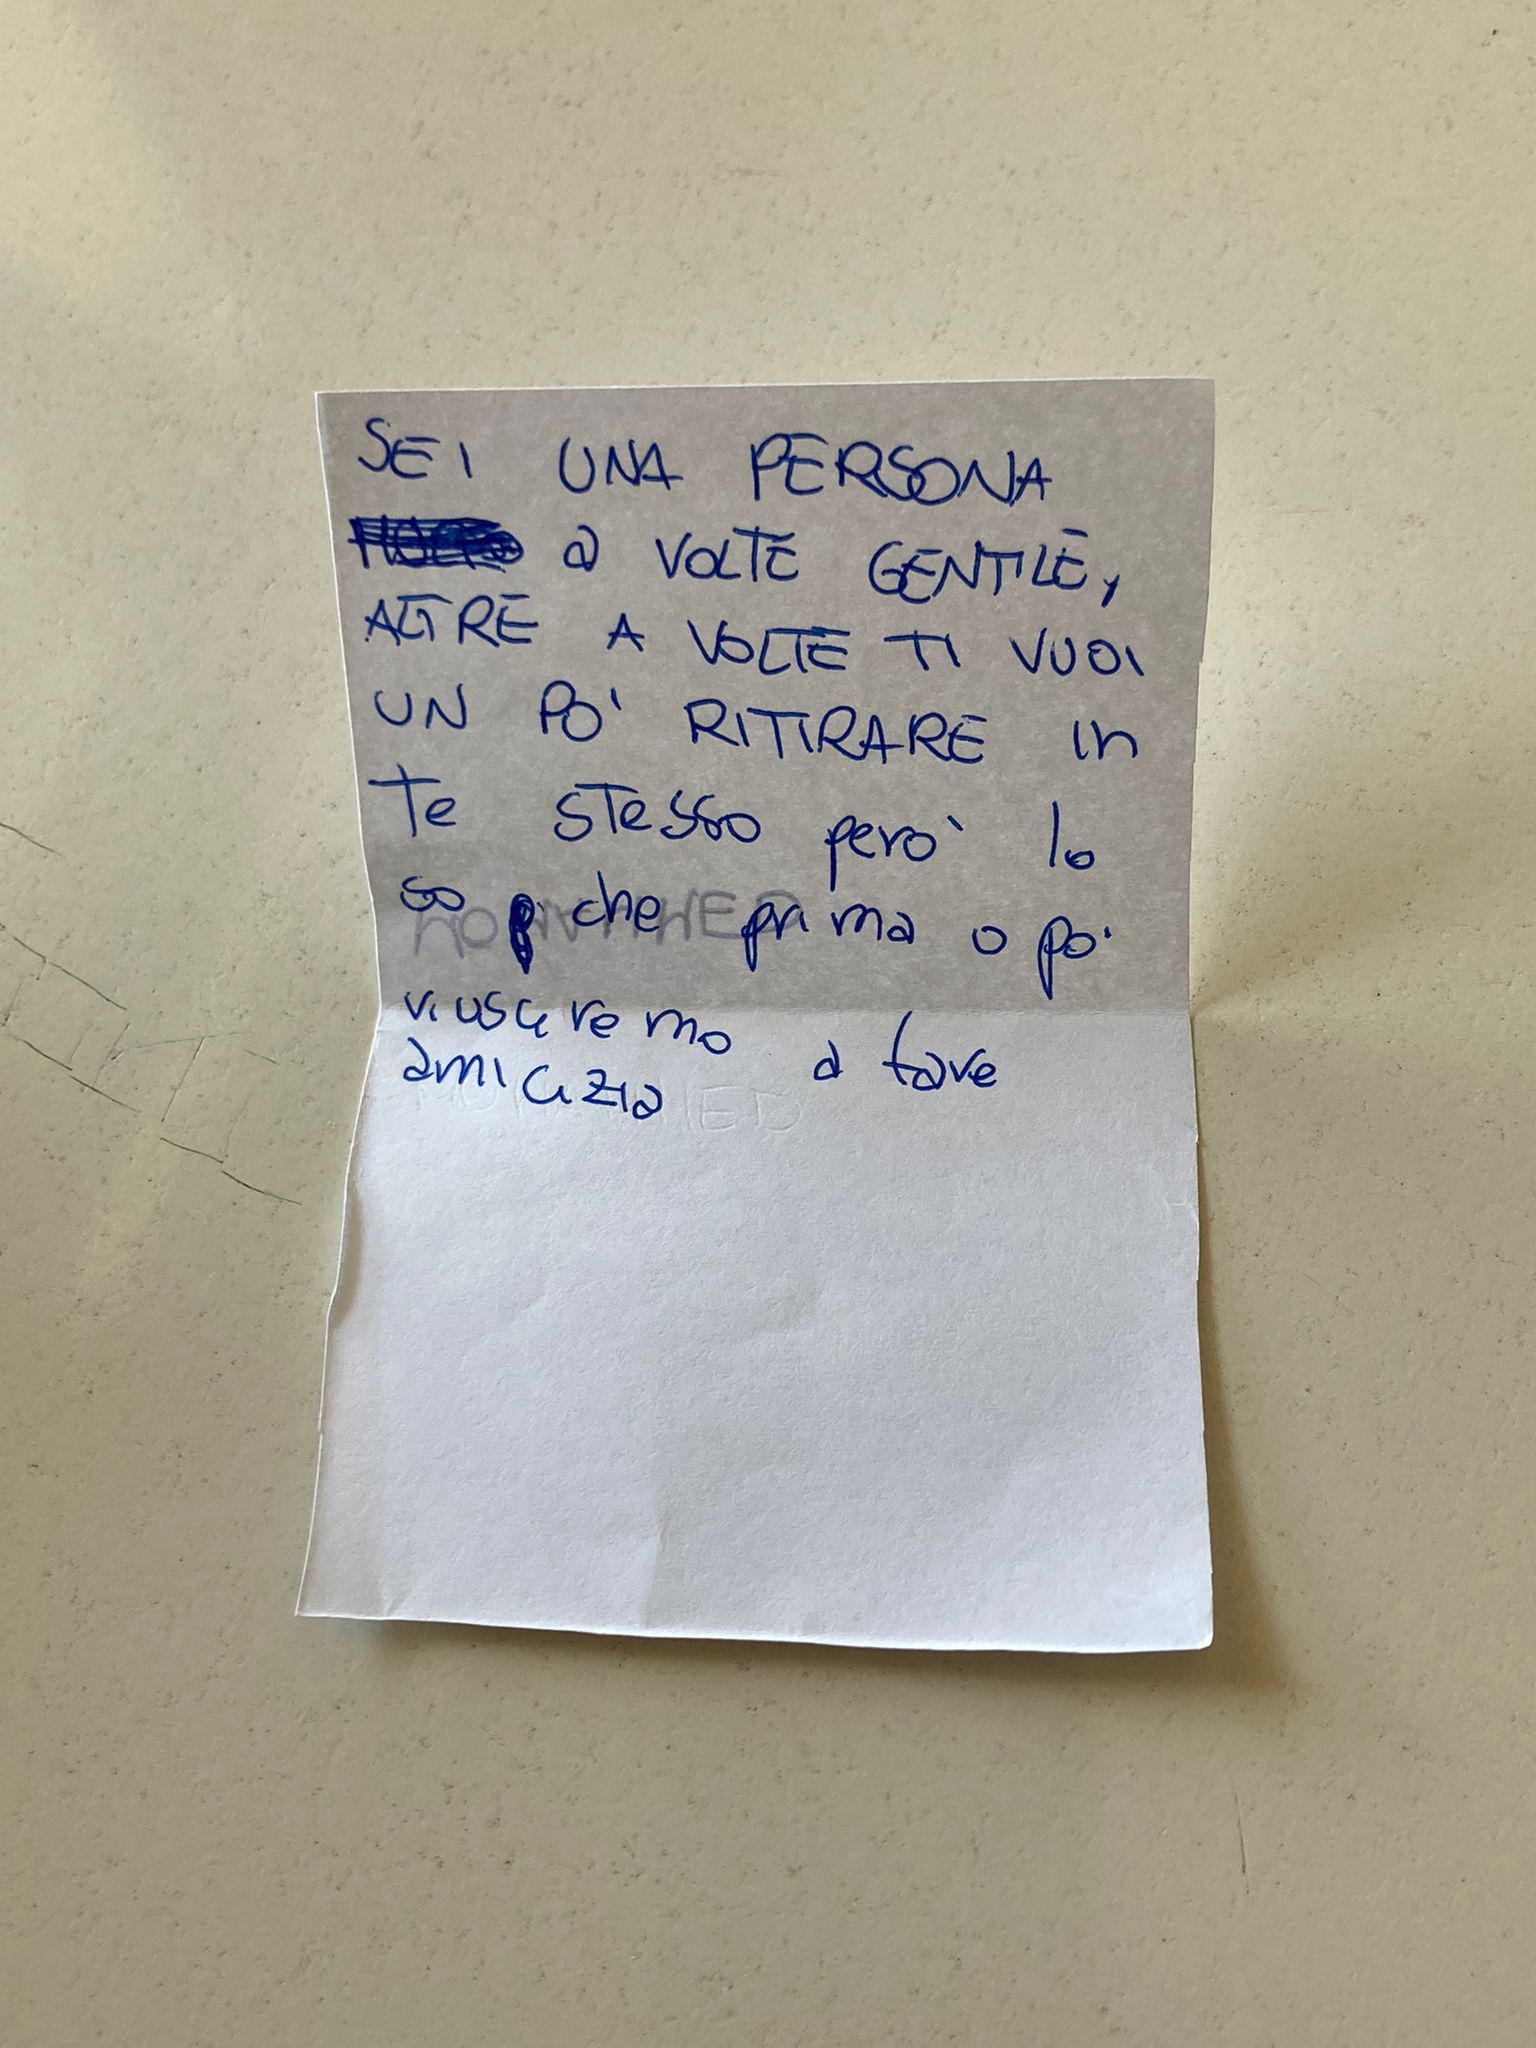 SEI UNA PERSONA
a VOLTE GENTILE,
ALTRE A VOLTE TI VUOI
UN PO' RITIRARE in
Te stesso però lo
so che prima o po'
riusciremo a fare
amicizia
MOHAMMED